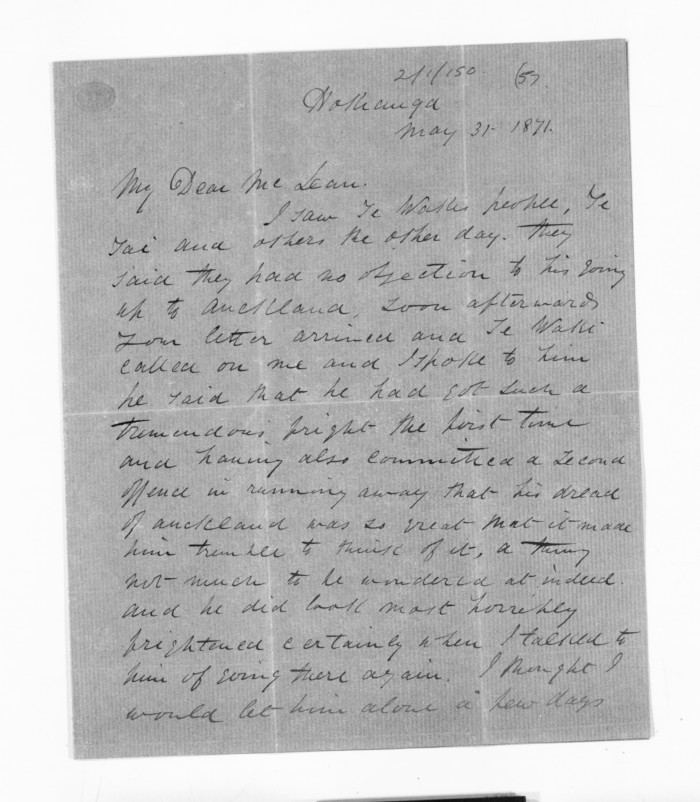 2/1/150. (5).
Hokianga
May 31- 1871.
My Dear Mc Lean.
I saw Te Wakis people, Te
Tai and others the other day. they
said they had no objection to his going
up to Auckland, soon afterwards
your letter arrived and Te Waki
called on me and I spoke to him
he said that he had got such a
tremendous fright the first time
and having also committed a second
offence in running away that his dread
of Auckland was so great that it made
him tremble to think of it, a thing
not much to be wondered at indeed.
and he did look most horribly
frightened certainly when I talked to
him of going there again. I thought I
would let him alone a few days